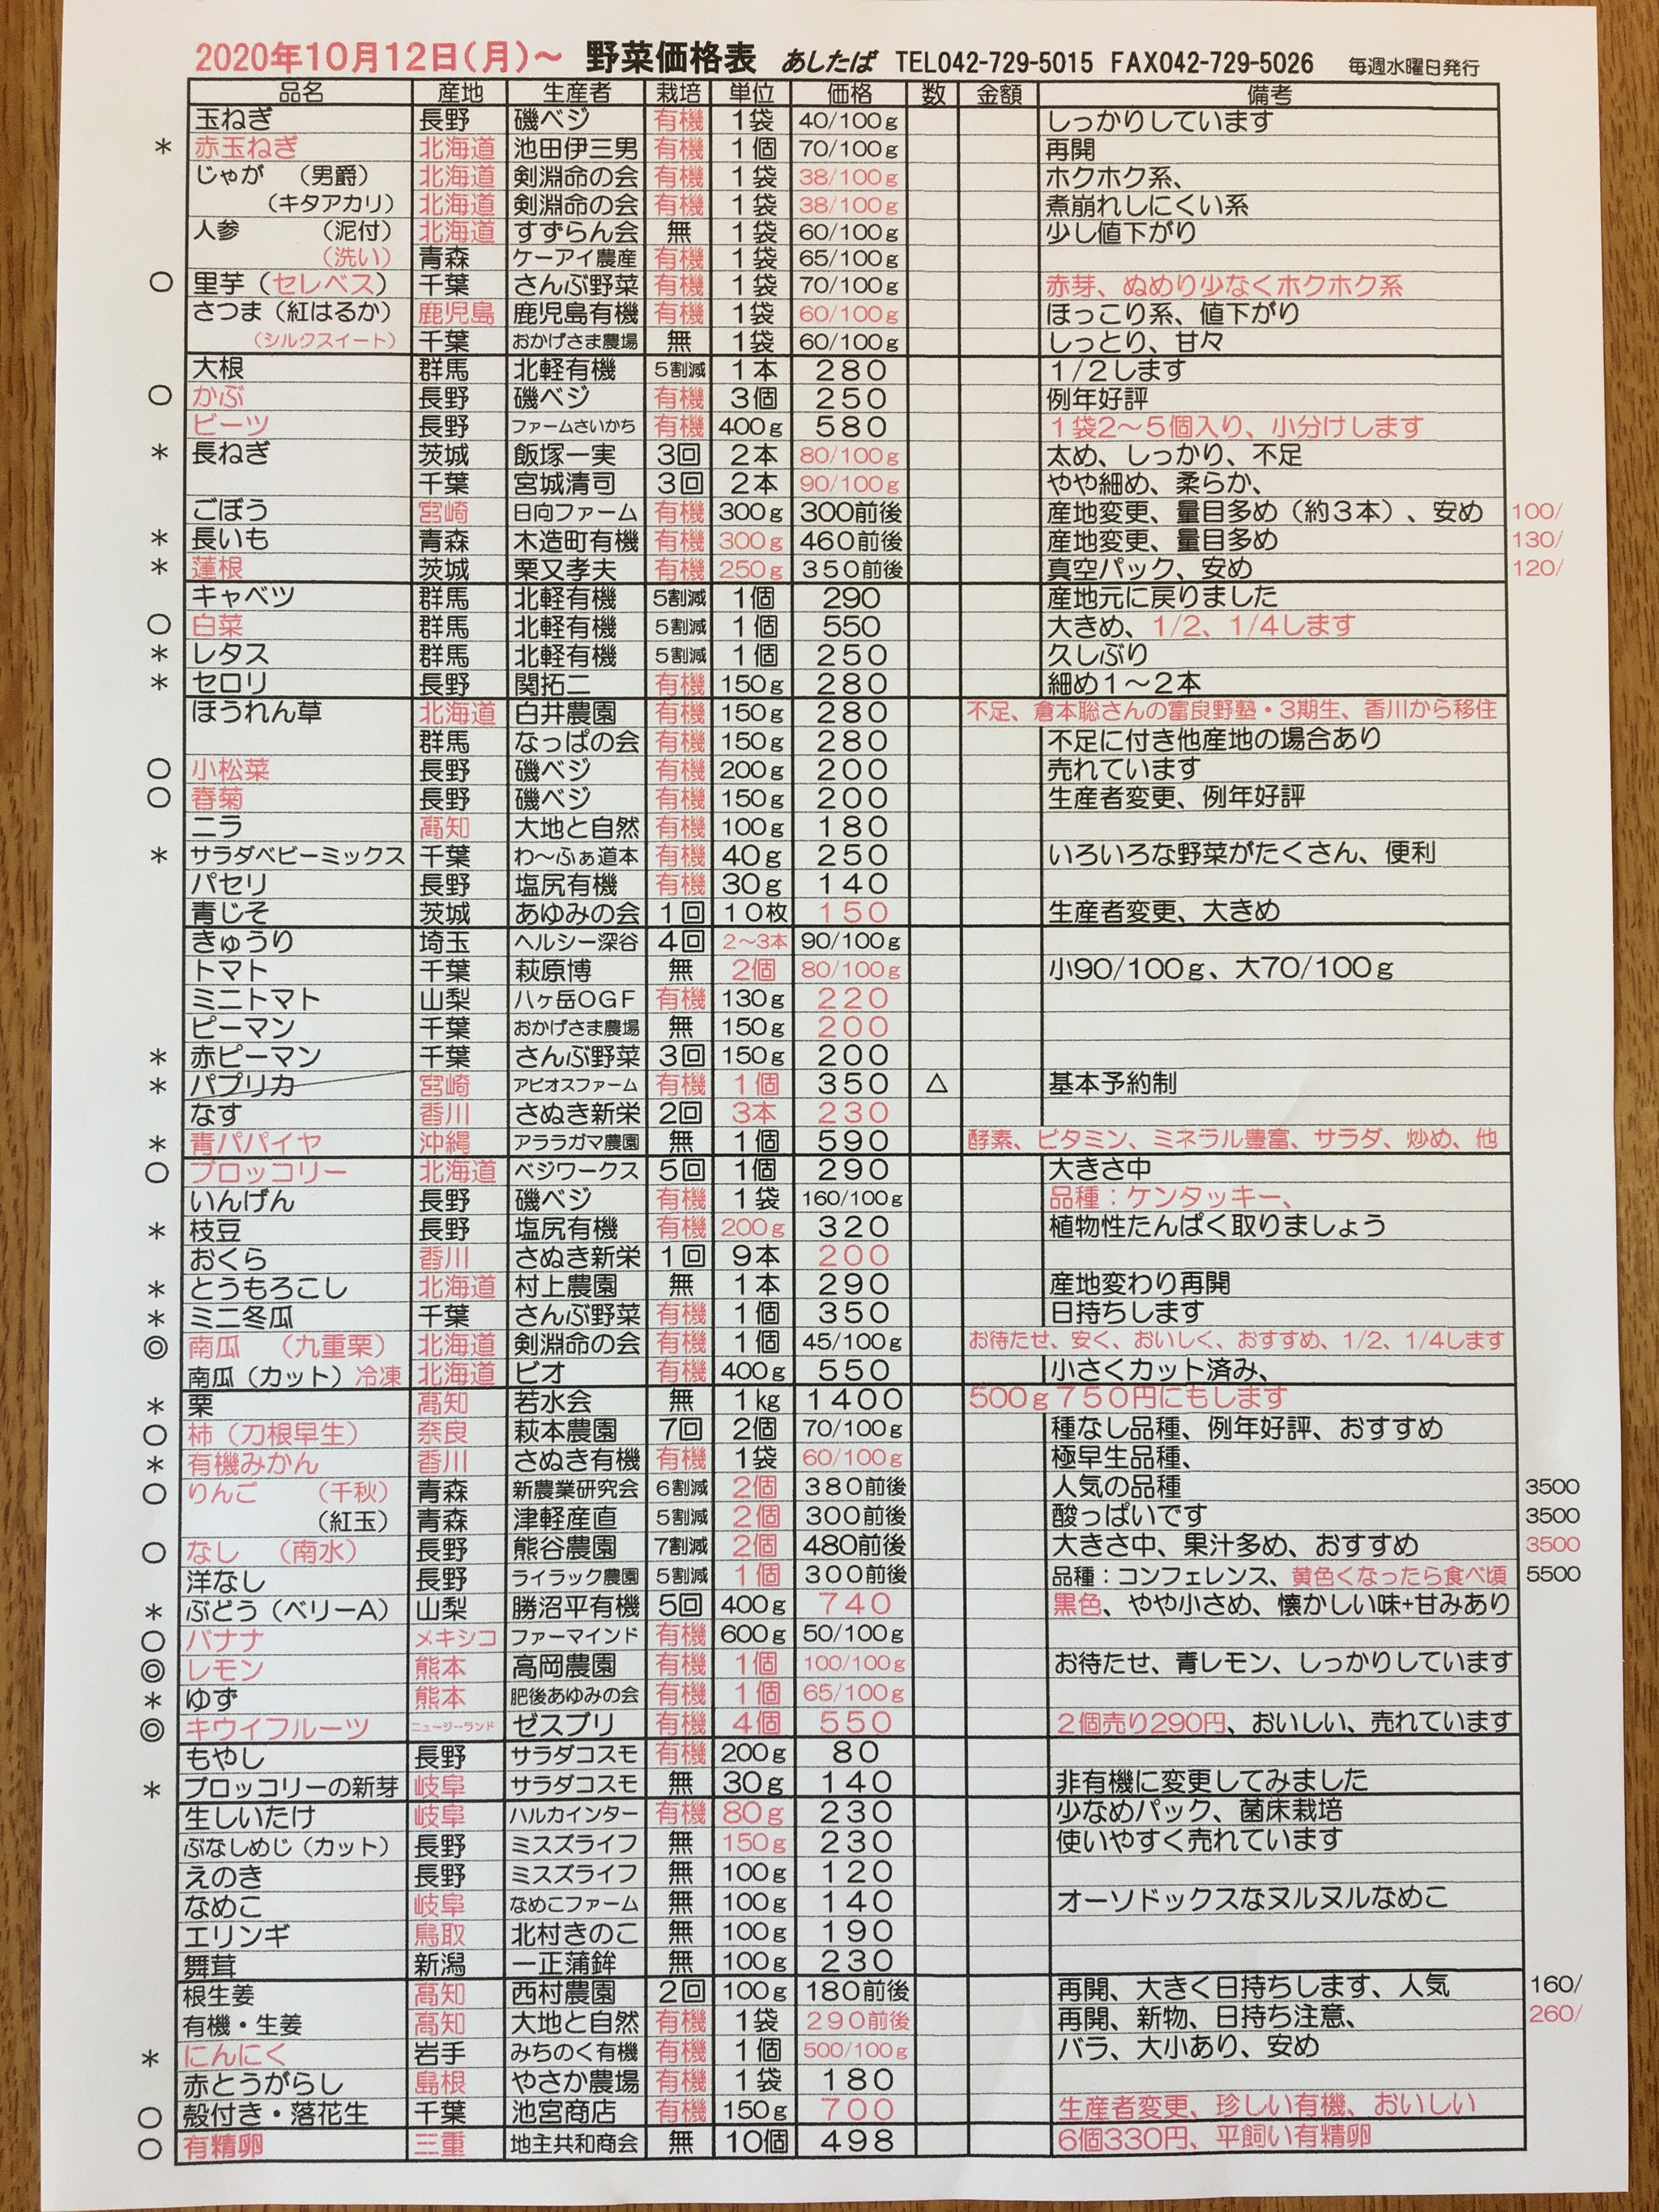 2020年10月12日(月)～ 野菜価格表 あしたば TEL042-729-5015 FAX042-729-5026 毎週水曜日発行
品名 産地 生産者 栽培 単位 価格 数 金額 備考
玉ねぎ 長野 磯ベジ 有機 1袋 40/100g しっかりしています
* 赤玉ねぎ 北海道 池田伊三男 有機 1個 70/100g 再開
じゃが (男爵) 北海道 剣淵命の会 有機 1袋 38/100g ホクホク系、
(キタアカリ) 北海道 剣淵命の会 有機 1袋 38/100g 煮崩れしにくい系
人参 (泥付) 北海道 すずらん会 無 1袋 60/100g 少し値下がり
(洗い) 青森 ケーアイ農産 有機 1袋 65/100g
○ 里芋(セレベス) 千葉 さんぶ野菜 有機 1袋 70/100g 赤芽、ぬめり少なくホクホク系
さつま(紅はるか) 鹿児島 鹿児島有機 有機 1袋 60/100g ほっこり系、値下がり
(シルクスイート) 千葉 おかげさま農場 無 1袋 60/100g しっとり、甘々
大根 群馬 北軽有機 5割減 1本 280 1/2します
○ かぶ 長野 磯ベジ 有機 3個 250 例年好評
ビーツ 長野 ファームさいかち 有機 400g 580 1袋2～5個入り、小分けします
* 長ねぎ 茨城 飯塚一実 3回 2本 80/100g 太め、しっかり、不足
千葉 宮城清司 3回 2本 90/100g やや細め、柔らか、
ごぼう 宮崎 日向ファーム 有機 300g 300前後 産地変更、量目多め(約3本)、安め 100/
* 長いも 青森 木造町有機 有機 300g 460前後 産地変更、量目多め 130/
* 蓮根 茨城 栗又孝夫 有機 250g 350前後 真空パック、安め 120/
キャベツ 群馬 北軽有機 5割減 1個 290 産地元に戻りました
○ 白菜 群馬 北軽有機 5割減 1個 550 大きめ、1/2、1/4します
* レタス 群馬 北軽有機 5割減 1個 250 久しぶり
* セロリ 長野 関拓二 有機 150g 280 細め1～2本
ほうれん草 北海道 白井農園 有機 150g 280 不足、倉本聡さんの富良野塾・3期生、香川から移住
群馬 なっぱの会 有機 150g 280 不足に付き他産地の場合あり
○ 小松菜 長野 磯ベジ 有機 200g 200 売れています
○ 春菊 長野 磯ベジ 有機 150g 200 生産者変更、例年好評
ニラ 高知 大地と自然 有機 100g 180
* サラダベビーミックス 千葉 わ～ふぁ道本 有機 40g 250 いろいろな野菜がたくさん、便利
パセリ 長野 塩尻有機 有機 30g 140
青じそ 茨城 あゆみの会 1回 10枚 150 生産者変更、大きめ
きゅうり 埼玉 ヘルシー深谷 4回 2～3本 90/100g
トマト 千葉 萩原博 無 2個 80/100g 小90/100g、大70/100g
ミニトマト 山梨 八ヶ岳OGF 有機 130g 220
ピーマン 千葉 おかげさま農場 無 150g 200
* 赤ピーマン 千葉 さんぶ野菜 3回 150g 200
* パプリカ 宮崎 アピオスファーム 有機 1個 350 △ 基本予約制
なす 香川 さぬき新栄 2回 3本 230
* 青パパイヤ 沖縄 アララガマ農園 無 1個 590 酵素、ビタミン、ミネラル豊富、サラダ、炒め、他
○ ブロッコリー 北海道 ベジワークス 5回 1個 290 大きさ中
いんげん 長野 磯ベジ 有機 1袋 160/100g 品種：ケンタッキー、
* 枝豆 長野 塩尻有機 有機 200g 320 植物性たんぱく取りましょう
おくら 香川 さぬき新栄 1回 9本 200
* とうもろこし 北海道 村上農園 無 1本 290 産地変わり再開
* ミニ冬瓜 千葉 さんぶ野菜 有機 1個 350 日持ちします
◎ 南瓜 (九重栗) 北海道 剣淵命の会 有機 1個 45/100g お待たせ、安く、おいしく、おすすめ、1/2、1/4します
南瓜(カット)冷凍 北海道 ビオ 有機 400g 550 小さくカット済み、
* 栗 高知 若水会 無 1kg 1400 500g750円にもします
○ 柿(刀根早生) 奈良 萩本農園 7回 2個 70/100g 種なし品種、例年好評、おすすめ
* 有機みかん 香川 さぬき有機 有機 1袋 60/100g 極早生品種、
○ りんご (千秋) 青森 新農業研究会 6割減 2個 380前後 人気の品種 3500
(紅玉) 青森 津軽産直 5割減 2個 300前後 酸っぱいです 3500
○ なし (南水) 長野 熊谷農園 7割減 2個 480前後 大きさ中、果汁多め、おすすめ 3500
洋なし 長野 ライラック農園 5割減 1個 300前後 品種：コンフェレンス、黄色くなったら食べ頃 5500
* ぶどう(ベリーA) 山梨 勝沼平有機 5回 400g 740 黒色、やや小さめ、懐かしい味+甘みあり
○ バナナ メキシコ ファーマインド 有機 600g 50/100g
◎ レモン 熊本 高岡農園 有機 1個 100/100g お待たせ、青レモン、しっかりしています
* ゆず 熊本 肥後あゆみの会 有機 1個 65/100g
◎ キウイフルーツ ニュージーランド ゼスプリ 有機 4個 550 2個売り290円、おいしい、売れています
もやし 長野 サラダコスモ 有機 200g 80
* ブロッコリーの新芽 岐阜 サラダコスモ 無 30g 140 非有機に変更してみました
生しいたけ 岐阜 ハルカインター 有機 80g 230 少なめパック、菌床栽培
ぶなしめじ(カット) 長野 ミスズライフ 無 150g 230 使いやすく売れています
えのき 長野 ミスズライフ 無 100g 120
なめこ 岐阜 なめこファーム 無 100g 140 オーソドックスなヌルヌルなめこ
エリンギ 鳥取 北村きのこ 無 100g 190
舞茸 新潟 一正蒲鉾 無 100g 230
根生姜 高知 西村農園 2回 100g 180前後 再開、大きく日持ちします、人気 160/
有機・生姜 高知 大地と自然 有機 1袋 290前後 再開、新物、日持ち注意、 260/
* にんにく 岩手 みちのく有機 有機 1個 500/100g バラ、大小あり、安め
赤とうがらし 島根 やさか農場 有機 1袋 180
○ 殻付き・落花生 千葉 池宮商店 有機 150g 700 生産者変更、珍しい有機、おいしい
○ 有精卵 三重 地主共和商会 無 10個 498 6個330円、平飼い有精卵